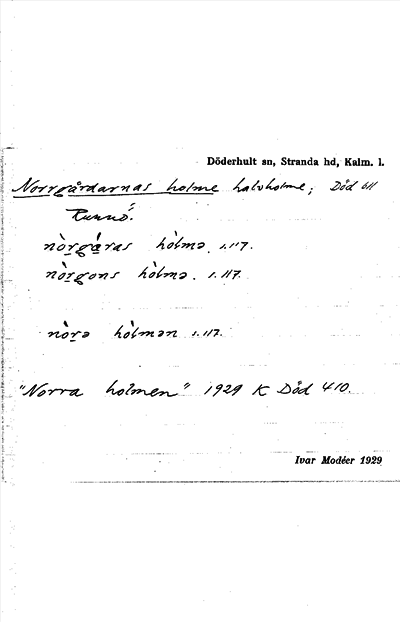 Döderhult sn, Stranda hd, Kalm. l.
Norrgårdarnas holme halvholme; Död 611
Runnö.
nòrgåras hòlmə. 1.117.
nòrgons hòlmə. 1.117.
nòrə hòlmən 1.117.
"Norra holmen" 1929 K Död 410.
Ivar Modéer 1929